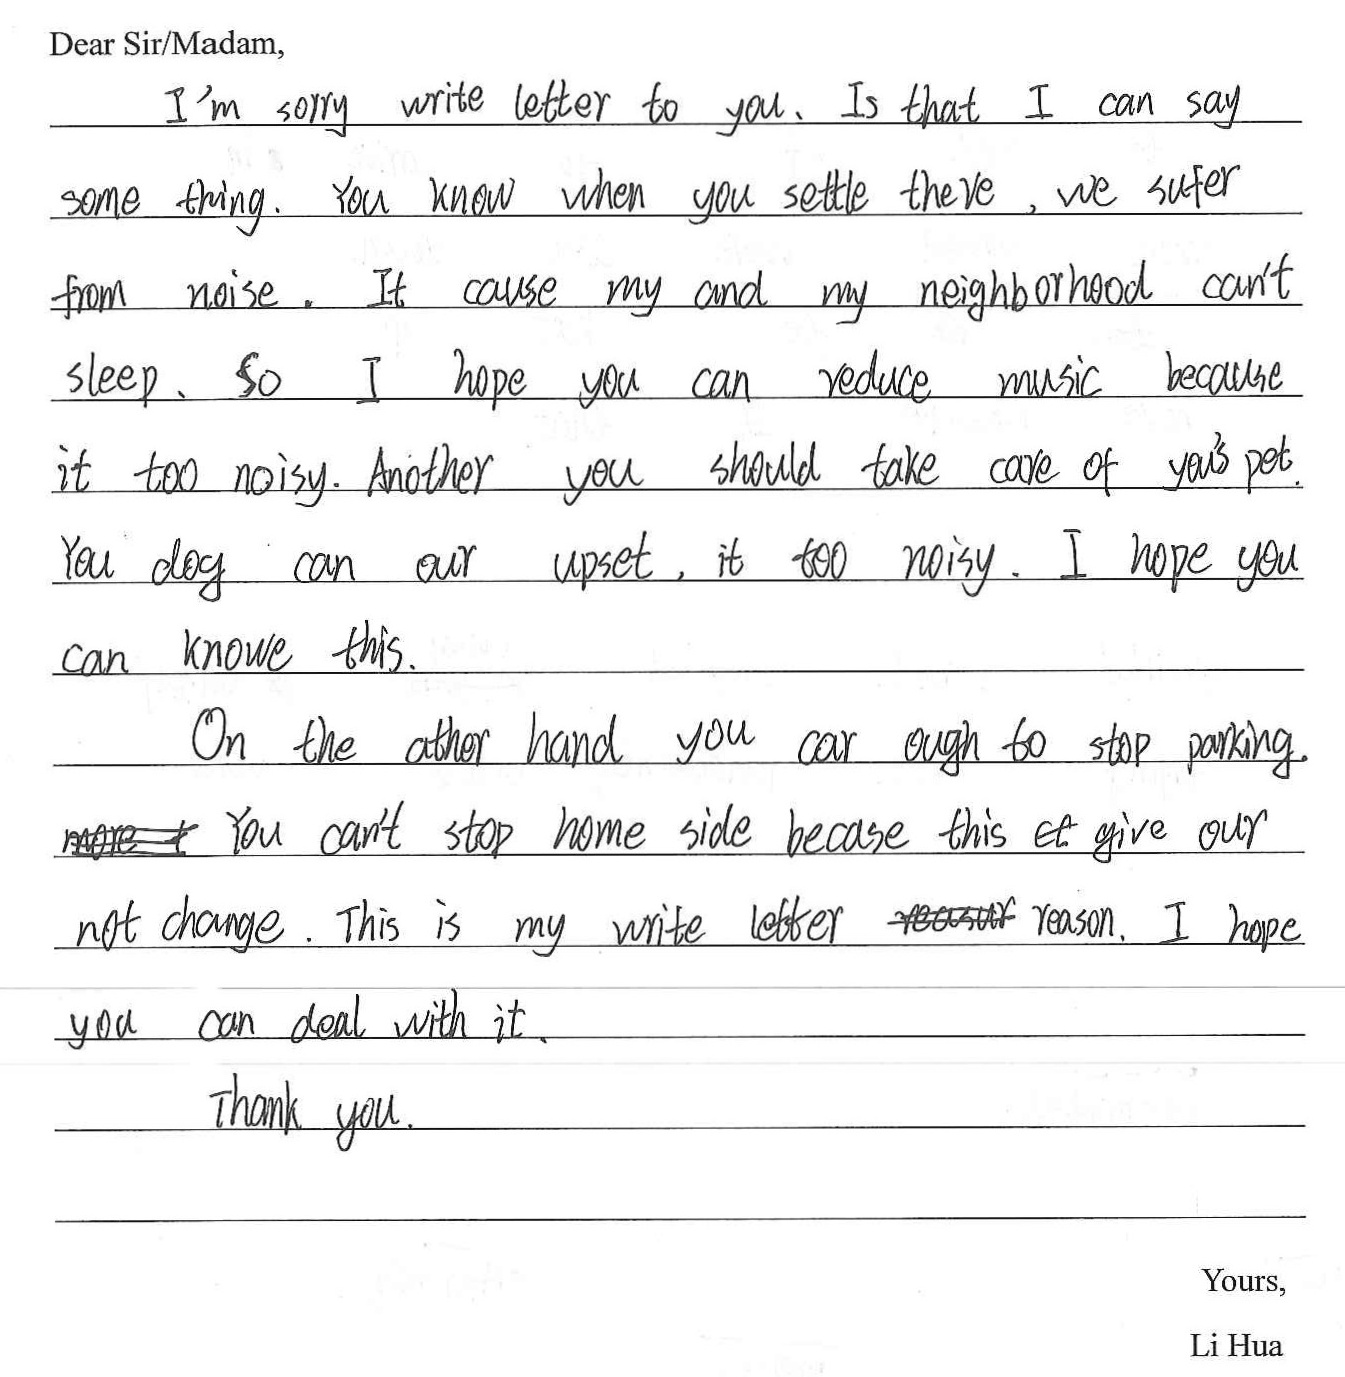 Dear Sir/Madam,
I'm sorry write letter to you. Is that I can say
some thing. You know when you settle there, we sufer
from noise. It cause my and my neighborhood can't
sleep. So I hope you can reduce music because
it too noisy. Another you should take care of you's pet.
You dog can our upset, it too noisy. I hope you
can knowe this.
On the ather hand you car ough to stop parking.
You can't stop home side becase this give our
not change. This is my write letter reason. I hope
you can deal with it.
Thank you.
Yours,
Li Hua